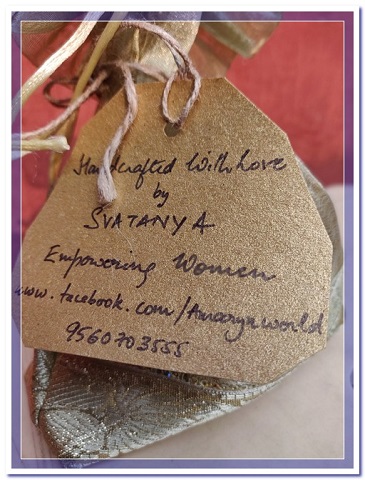 Handcrafted With Love
by
SVATANYA
Empowering Women
www.facebook.com/Amoaryaworld
9560703555